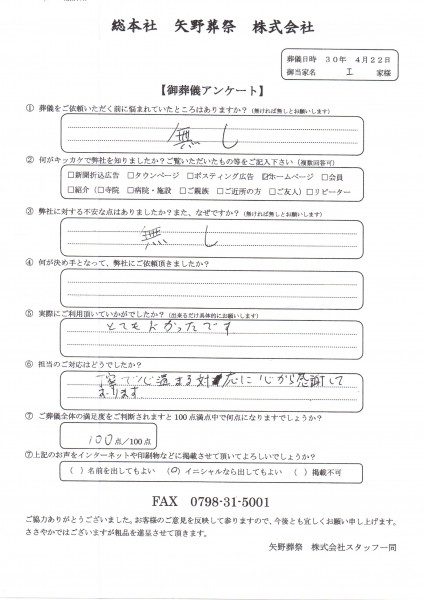 総本社 矢野葬祭 株式会社
葬儀日時 30年 4月22日
御当家名 I 家様
【御葬儀アンケート】
① 葬儀をご依頼いただく前に悩まれていたところはありますか?(無ければ無しとお願いします)
無し
② 何がキッカケで弊社を知りましたか?ご覧いただいたもの等をご記入下さい(複数回答可)
□新聞折込広告 □タウンページ □ポスティング広告 ☑ホームページ □会員
□紹介(□寺院 □病院・施設 □ご親族 □ご近所の方 □ご友人)□リピーター
③ 弊社に対する不安な点はありましたか?また、なぜですか?(無ければ無しとお願いします)
無し
④ 何が決め手となって、弊社にご依頼頂きましたか?
⑤ 実際にご利用頂いていかがでしたか?(出来るだけ具体的にお願いします)
とてもよかったです
⑥ 担当のご対応はどうでしたか?
丁寧で心温まる対応に心から感謝して
おります
⑦ ご葬儀全体の満足度をご判断されますと100点満点中で何点になりますでしょうか?
100点/100点
⑦上記のお声をインターネットや印刷物などに掲載させて頂いてよろしいでしょうか?
( )名前を出してもよい (○)イニシャルなら出してもよい ( )掲載不可
FAX 0798-31-5001
ご協力ありがとうございました。お客様のご意見を反映して参りますので、今後とも宜しくお願い申し上げます。
ささやかではございますが粗品を進呈させて頂きます。
矢野葬祭 株式会社スタッフ一同